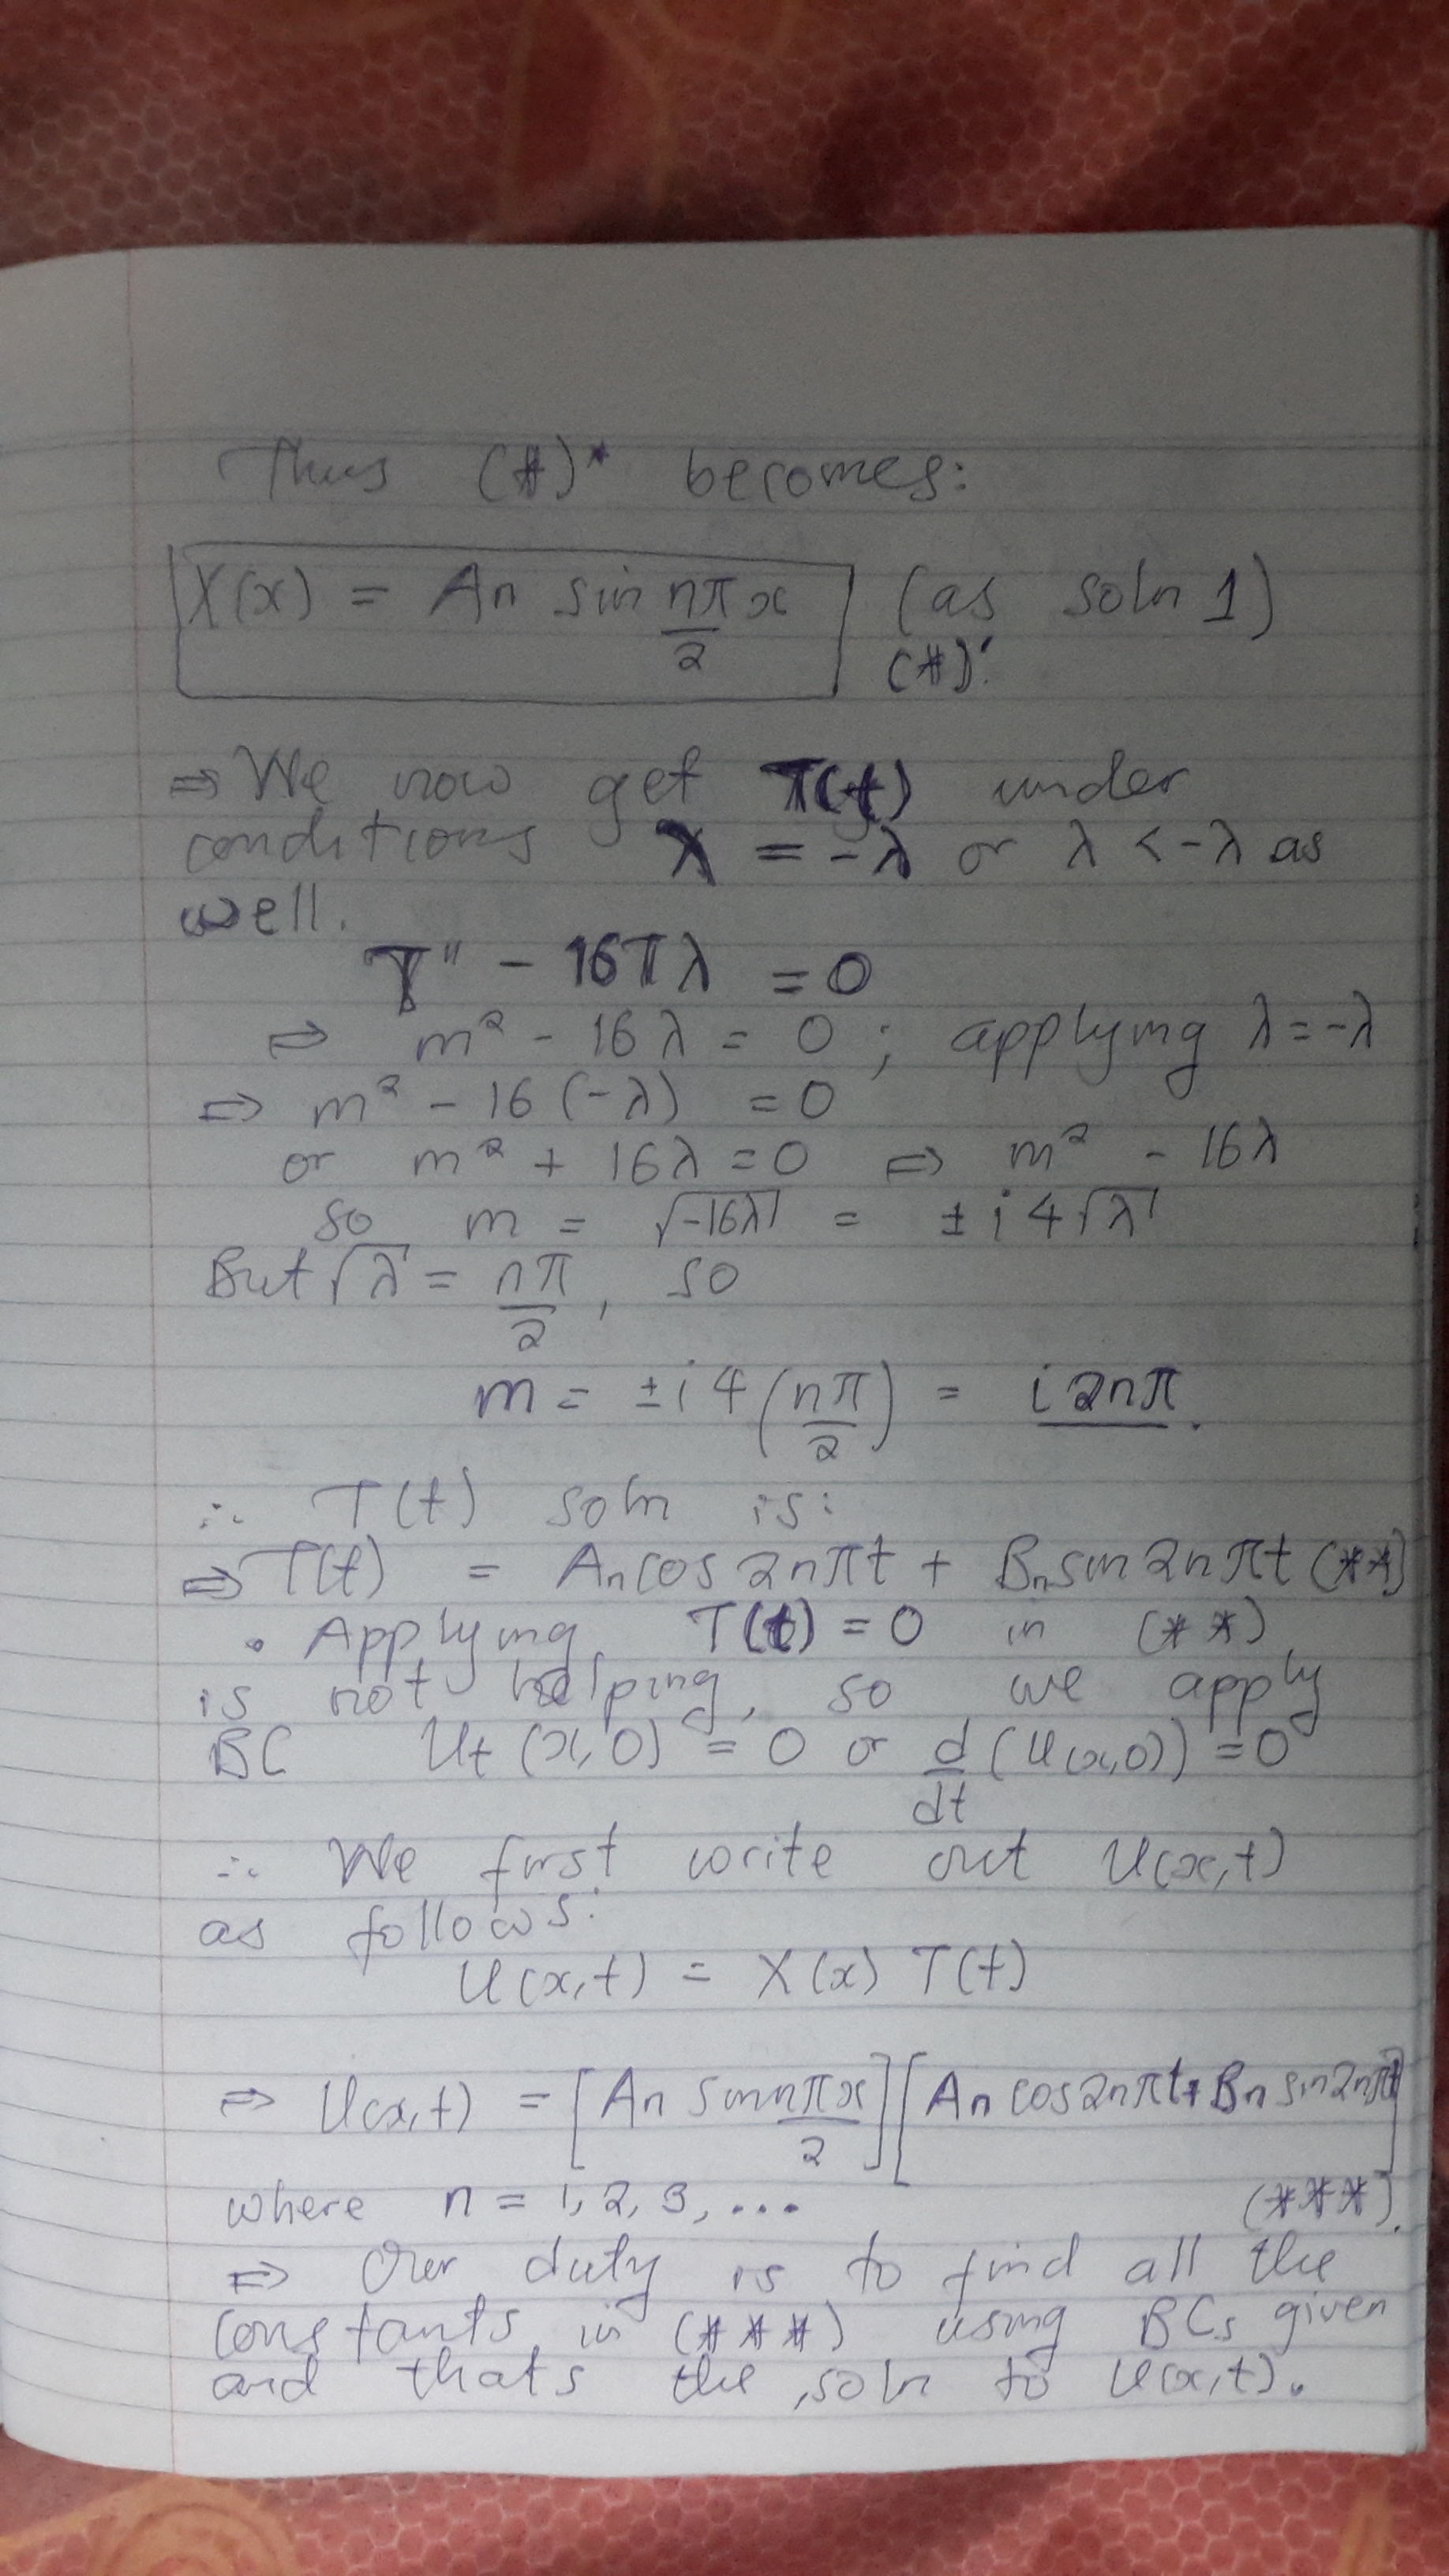 Thus (#)* becomes:
X(x) = An sin nπx/2 (as soln 1)
(#)'.
⇒ We now get T(t) under
conditions λ = -λ or λ < -λ as
well.
T'' - 16Tλ = 0
⇒ m² - 16λ = 0 ; applying λ = -λ
⇒ m² - 16(-λ) = 0
or m² + 16λ = 0 ⇒ m² - 16λ
so m = √-16λ = ± i 4√λ
But √λ = nπ/2, so
m = ± i 4 (nπ/2) = i 2nπ.
∴ T(t) soln is:
⇒ T(t) = An cos 2nπt + Bn sin 2nπt (**)
• Applying T(t) = 0 in (**)
is not helping, so we apply
BC Ut (x, 0) = 0 or d/dt (U(x,0)) = 0
∴ We first write out U(x,t)
as follows:
U(x,t) = X(x) T(t)
⇒ U(x,t) = [An sin nπx/2] [An cos 2nπt + Bn sin 2nπt]
where n = 1, 2, 3, ... (***).
⇒ Our duty is to find all the
constants in (***) using BCs given
and thats the soln to U(x,t).